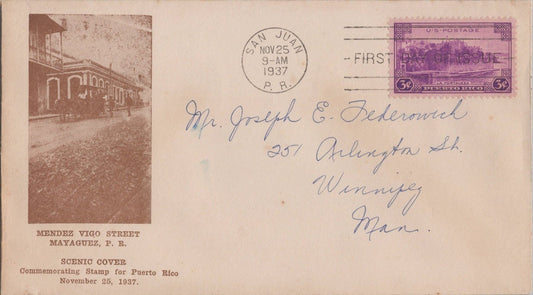 SAN JUAN
NOV 25
9-AM
1937
P. R.
FIRST DAY OF ISSUE
U·S·POSTAGE
3¢ 3¢
PUERTO RICO
Mr. Joseph E. Federowich
251 Arlington St.
Winnipeg
Man.
MENDEZ VIGO STREET
MAYAGUEZ, P. R.
SCENIC COVER
Commemorating Stamp for Puerto Rico
November 25, 1937.